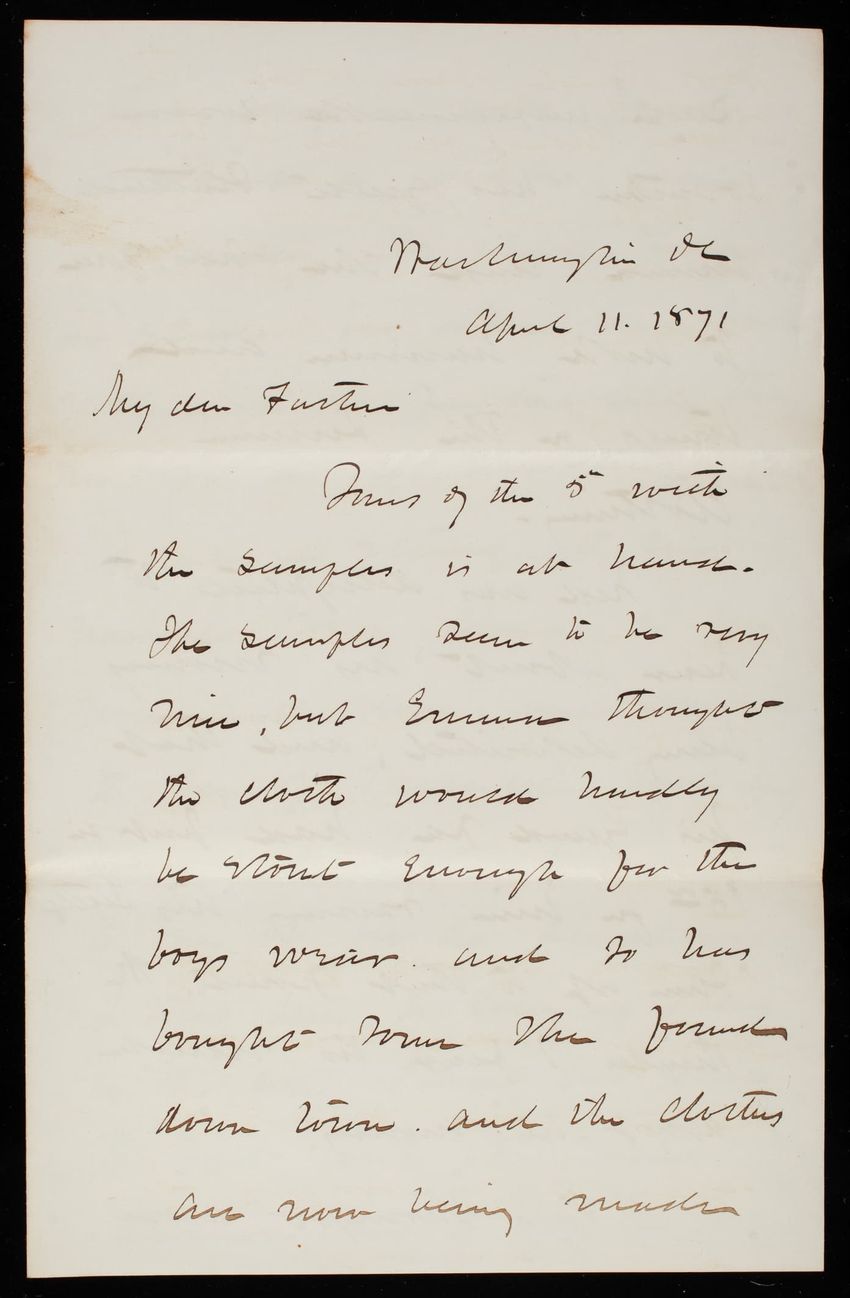 Washington DC
April 11. 1871
My dear Father
Yours of the 5th with
the samples is at hand.
The samples seem to be very
nice, but Emma thought
the cloth would hardly
be stout enough for the
boys wear. and so has
bought some she found
down town. and the clothes
are now being made